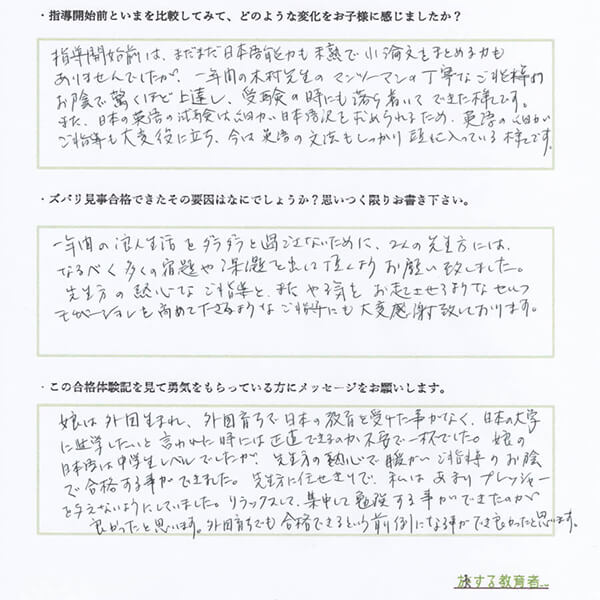 ・指導開始前といまを比較してみて、どのような変化をお子様に感じましたか？
指導開始前は、まだまだ日本語能力も未熟で小論文をまとめる力も
ありませんでしたが、一年間の木村先生のマンツーマンの丁寧なご指導の
お陰で驚くほど上達し、受験の時にも落ち着いてできた様です。
また、日本の英語の試験は細かい日本語訳を求められるため、英語の細かい
ご指導も大変役に立ち、今は英語の文法もしっかり頭に入っている様です。
・ズバリ見事合格できたその要因はなにでしょうか？思いつく限りお書き下さい。
一年間の浪人生活をダラダラと過ごさないために、2人の先生方には、
なるべく多くの宿題や課題を出して頂くようお願い致しました。
先生方の熱心なご指導と、またやる気をお起こさせるようなセルフ
モチベーションを高めてくださるようなご指導にも大変感謝致しております。
・この合格体験記を見て勇気をもらっている方にメッセージをお願いします。
娘は外国生まれ、外国育ちで日本の教育を受けた事がなく、日本の大学
に進学したいと言われた時には正直できるのか不安で一杯でした。娘の
日本語は中学生レベルでしたが、先生方の熱心で暖かいご指導のお陰
で合格する事ができました。先生方に任せきりで、私はあまりプレッシャー
を与えないようにしていました。リラックスして、集中して勉強する事ができたのが
良かったと思います。外国育ちでも合格できるという前例になる事ができ良かったと思います。
旅する教育者